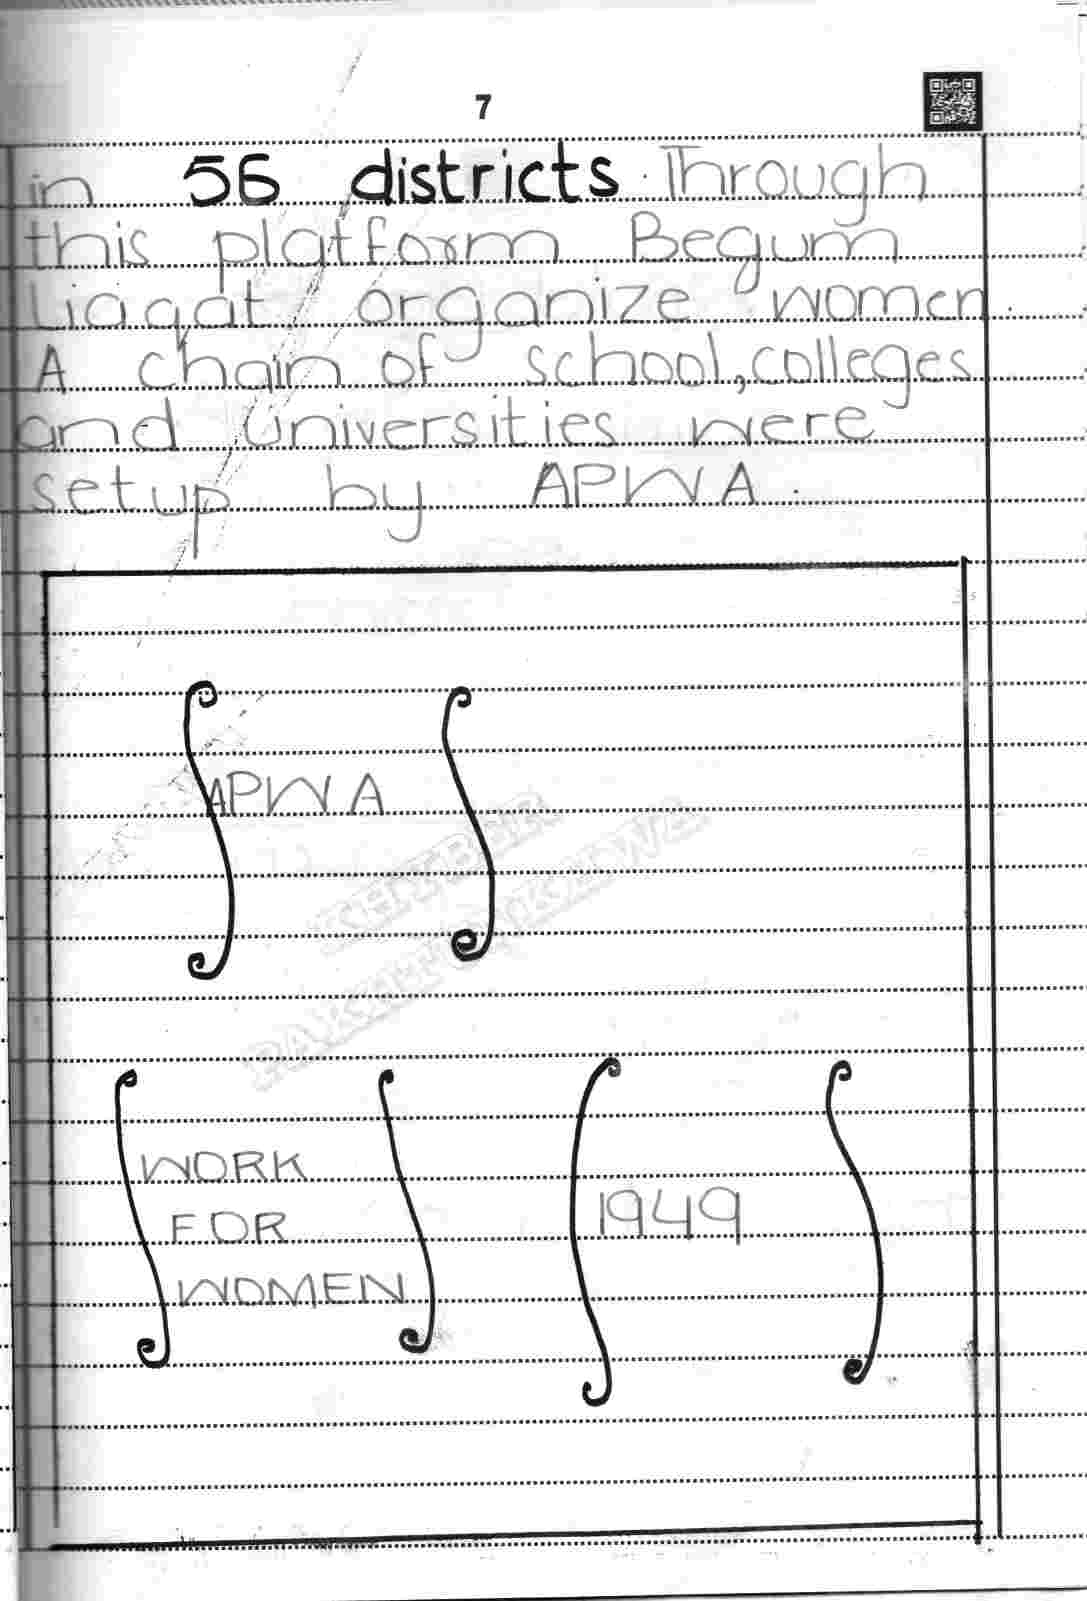 7
in 56 districts. Through
this platform Begum
Liaqat organize women.
A chain of school, colleges
and universities were
setup by APWA.
APWA
KHYBER
PAKHTUNKHWA
WORK
FOR
WOMEN
1949